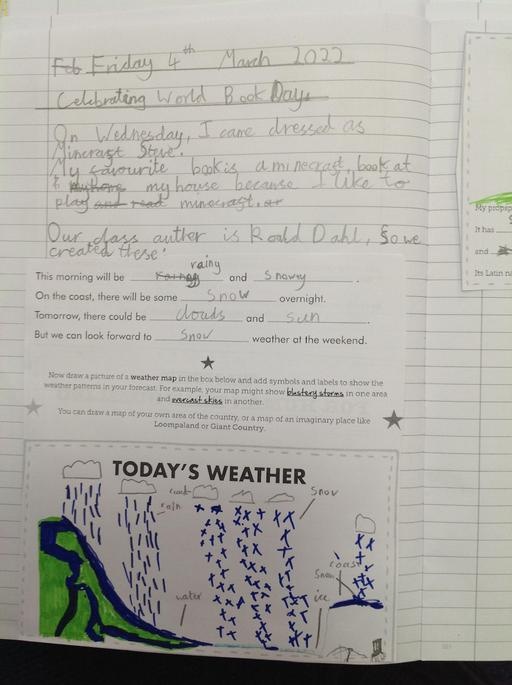 Feb Friday 4th March 2022
Celebrating World Book Days
On Wednesday, I came dressed as
Mincraft Steve.
My favourite book is a minecraft, book at
my house because I like to
play and read minecraft. or
Our class auther is Roald Dahl, So we
created these:
rainy
This morning will be and Snowy .
On the coast, there will be some Snow overnight.
Tomorrow, there could be clouds and sun .
But we can look forward to Snow weather at the weekend.
Now draw a picture of a weather map in the box below and add symbols and labels to show the
weather patterns in your forecast. For example, your map might show blustery storms in one area
and overcast skies in another.
You can draw a map of your own area of the country, or a map of an imaginary place like
Loompaland or Giant Country.
TODAY'S WEATHER
Snow
rain
coast
Snow
water
ice
It has
and
Its Latin na